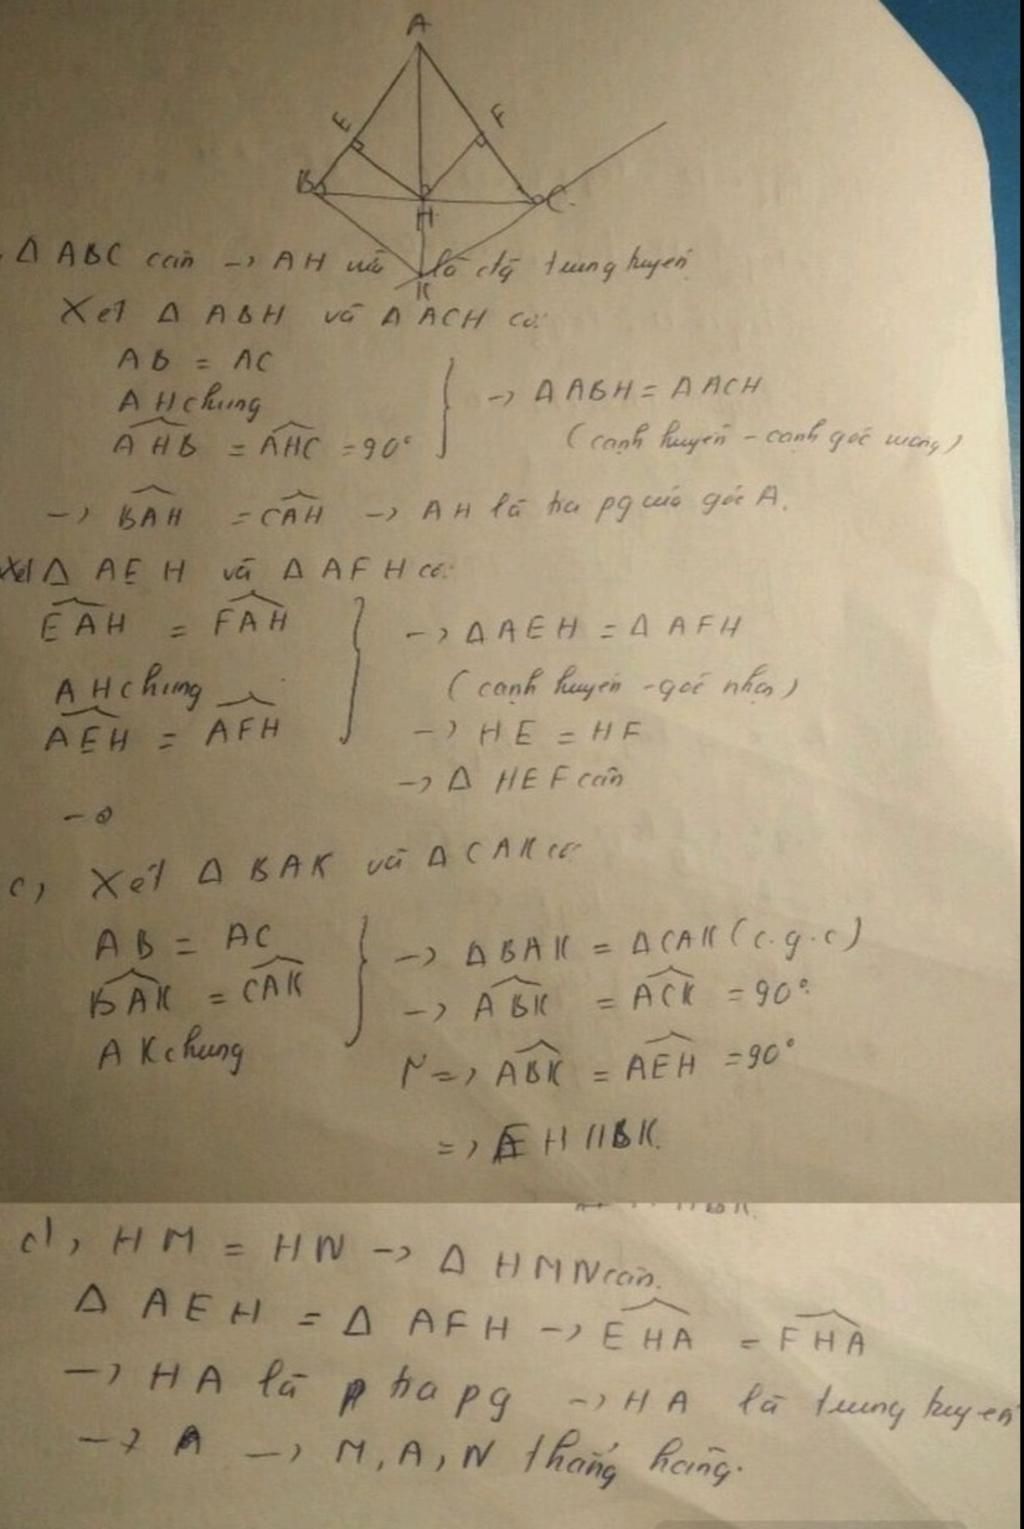 A
E
F
B
H
C
K
Δ ABC cân -> AH vừa là đg trung tuyến
Xét Δ ABH và Δ ACH có:
AB = AC
AH chung
AHB = AHC = 90°
-> Δ ABH = Δ ACH
(cạnh huyền - cạnh góc vuông)
-> BAH = CAH -> AH là tia pg của góc A.
Xét Δ AEH và Δ AFH có:
EAH = FAH
AH chung
AEH = AFH
-> Δ AEH = Δ AFH
(cạnh huyền - góc nhọn)
-> HE = HF
-> Δ HEF cân
c, Xét Δ BAK và Δ CAK có:
AB = AC
BAK = CAK
AK chung
-> Δ BAK = Δ CAK (c.g.c)
-> ABK = ACK = 90°
=> ABK = AEH = 90°
=> EH // BK.
d, HM = HN -> Δ HMN cân.
Δ AEH = Δ AFH -> EHA = FHA
-> HA là tia pg -> HA là trung tuyến
-> A -> M, A, N thẳng hàng.